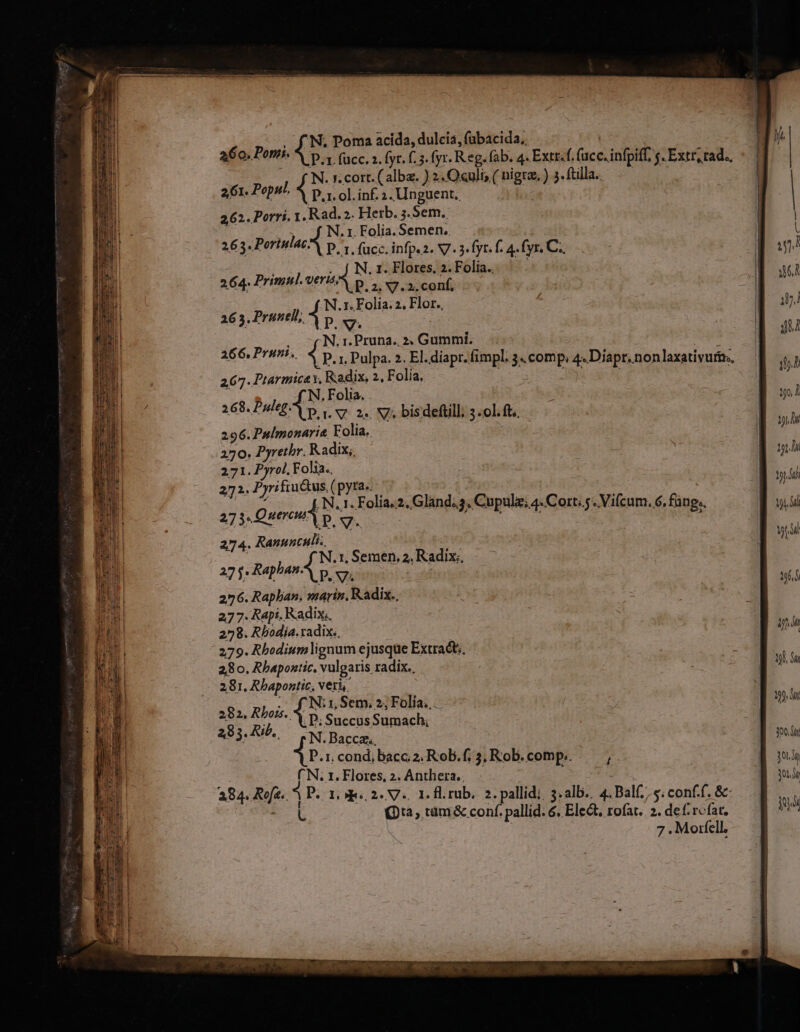 260. Pomi. { N. Poma acida, dulcia, subacida,
P. 1. succ. 2. syr. s. 3. syr. Reg. sab. 4. Extr. s. succ. inspiss. 5. Extr. rad.
261. Popul. { N. 1. cort. (albæ.) 2. Oculi, (nigræ.) 3. stilla.
P. 1. ol. inf. 2. Unguent.
262. Porri. 1. Rad. 2. Herb. 3. Sem.
263. Portulac. { N. 1. Folia. Semen.
P. 1. succ. insp. 2. ▽. 3. syr. s. 4. syr. C.
264. Primul. veris, { N. 1. Flores, 2. Folia.
P. 2. ▽. 2. conf.
263. Prunell, { N. 1. Folia. 2, Flor.
P. ▽.
266. Pruni. { N. 1. Pruna. 2. Gummi.
P. 1. Pulpa. 2. El. diapr. simpl. 3. comp. 4. Diapr. non laxativum.
267. Ptarmicæ 1. Radix, 2, Folia.
268. Puleg. { N. Folia.
P. 1. ▽ 2. ▽. bis destill. 3. ol. st.
296. Pulmonariæ Folia.
270. Pyrethr. Radix,
271. Pyrol. Folia.
272. Pyri fructus, (pyra.
273. Quercus { N. 1. Folia. 2. Gland. 3. Cupulæ; 4. Cort. 5. Viscum. 6. fung.
P. ▽.
274. Ranunculi.
275. Raphan. { N. 1, Semen, 2, Radix,
P. ▽.
276. Raphan. marin. Radix.
277. Rapi. Radix.
278. Rhodia. radix.
279. Rhodium lignum ejusque Extract.
280. Rhapontic. vulgaris radix.
281. Rhapontic, veri,
282. Rhois. { N: 1, Sem. 2, Folia.
P. Succus Sumach,
283. Rib. { N. Baccæ.
P. 1. cond, bacc. 2. Rob. s. 3, Rob. comp.
284. Rosæ. { N. 1. Flores, 2. Anthera.
P. 1. 2. ▽. 1. fl. rub. 2. pallid. 3. alb. 4. Bals. 5. conf. s. &
Ota, tùm & conf. pallid. 6. Elect. rosat. 2. def. rosat.
7. Morsell.